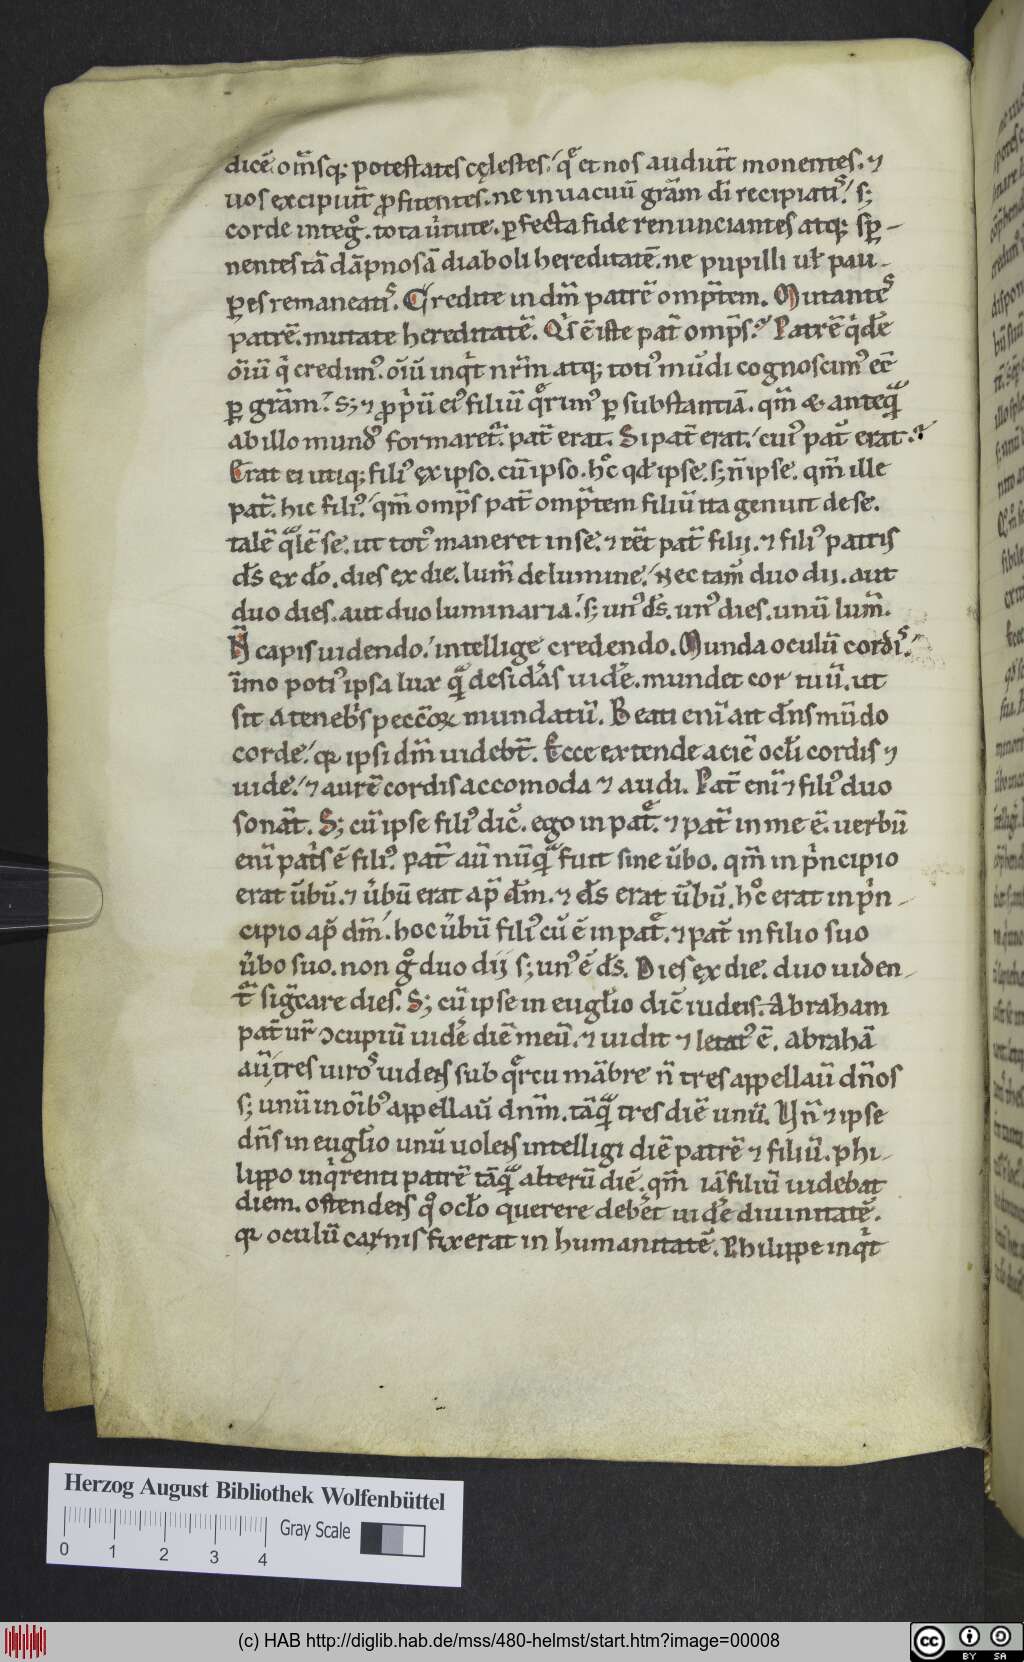 dicē. om̄sq; potestates cęlestes. q̄ et nos audiūt monentes. ⁊
uos excipiūt ꝓfitentes. ne in uacuū grām dī recipiatis. s;
corde integ°. tota uirtute. ꝑfecta fide renunciantes atq; sꝑ-
nentes tā dāpnosā diaboli hereditatē. ne pupilli ul̄ pau-
ꝑes remaneatis. Credite in dm̄ patrē omp̄tem. Mutantes
patrē. mutate hereditatē. Qis ē iste pat̄ omp̄s. Patrē qide
oīū qi credimꝰ. oīū inqit nr̄m atq; totiꝰ mūdi cognoscimꝰ eē
ꝑ grām. S; ⁊ ꝓpiū eiꝰ filiū qrimꝰ ꝑ substantiā. qm̄ & anteqā
ab illo mundꝰ formaret̄. pat̄ erat. Si pat̄ erat. cuiꝰ pat̄ erat.
Erat ei utiq; filiꝰ ex ipso. cū ipso. hͦc qđ ipse. s; n̄ ipse. qm̄ ille
pat̄. hic filiꝰ. qm̄ omp̄s pat̄ omp̄tem filiū ita genuit de se.
talē qālē se. ut totꝰ maneret in se. ⁊ eēt pat̄ filii. ⁊ filiꝰ patris
d̄s ex dō. dies ex die. lum̄ de lumine. Nec tam̄ duo dii. aut
duo dies. aut duo luminaria. s; unꝰ d̄s. unꝰ dies. unū lum̄.
N̄ capis uidendo. intellige credendo. Munda oculū cordis.
īmo potiꝰ ipsa lux qā desideras uide. mundet cor tuū. ut
sit a tenebis peccōꝝ mundatū. Beati enī ait dn̄s mūdo
corde. qꝛ ipsi dm̄ uidebt̄. Ecce extende aciē ocl̄i cordis ⁊
uide. ⁊ aurē cordis accomoda ⁊ audi. Pat̄ enī ⁊ filiꝰ duo
sonāt. S; cū ipse filiꝰ dic̄. ego in pat̄. ⁊ pat̄ in me ē. uerbū
enī patis ē filiꝰ. pat̄ aū nūqā fuit sine ūbo. qm̄ in pincipio
erat ūbū. ⁊ ūbū erat ap̄ dm̄. ⁊ d̄s erat ūbū. hͦc erat in pin-
cipio ap̄ dm̄. hoc ūbū filiꝰ cū ē in pat̄. ⁊ pat̄ in filio suo
ūbo suo. non g° duo dii s; unꝰ ē d̄s. Dies ex die. duo uiden-
t̄ sigcare dies. S; cū ipse in eugl̄io dic̄ iudeis. Abraham
pat̄ ur̄ ↄcupiū uide diē meū. ⁊ uidit ⁊ letatꝰ ē. abrahā
aū tres uiros uidens sub qrcu mābre n̄ tres appellaū dn̄os
s; unū in oībꝰ appellaū dnm̄. tāqā tres diē unū. Nn̄ ⁊ ipse
dn̄s in eugl̄io unū uolens intelligi diē patrē ⁊ filiū. phi-
lippo inqirenti patrē tāqā alterū diē. qm̄ iā filiū uidebat
diem. ostendens q° ocl̄o querere debet uide diuinitatē.
qꝛ oculū carnis fixerat in humanitatē. Philippe inqit
Herzog August Bibliothek Wolfenbüttel
Gray Scale
0 1 2 3 4
(c) HAB http://diglib.hab.de/mss/480-helmst/start.htm?image=00008
cc BY SA